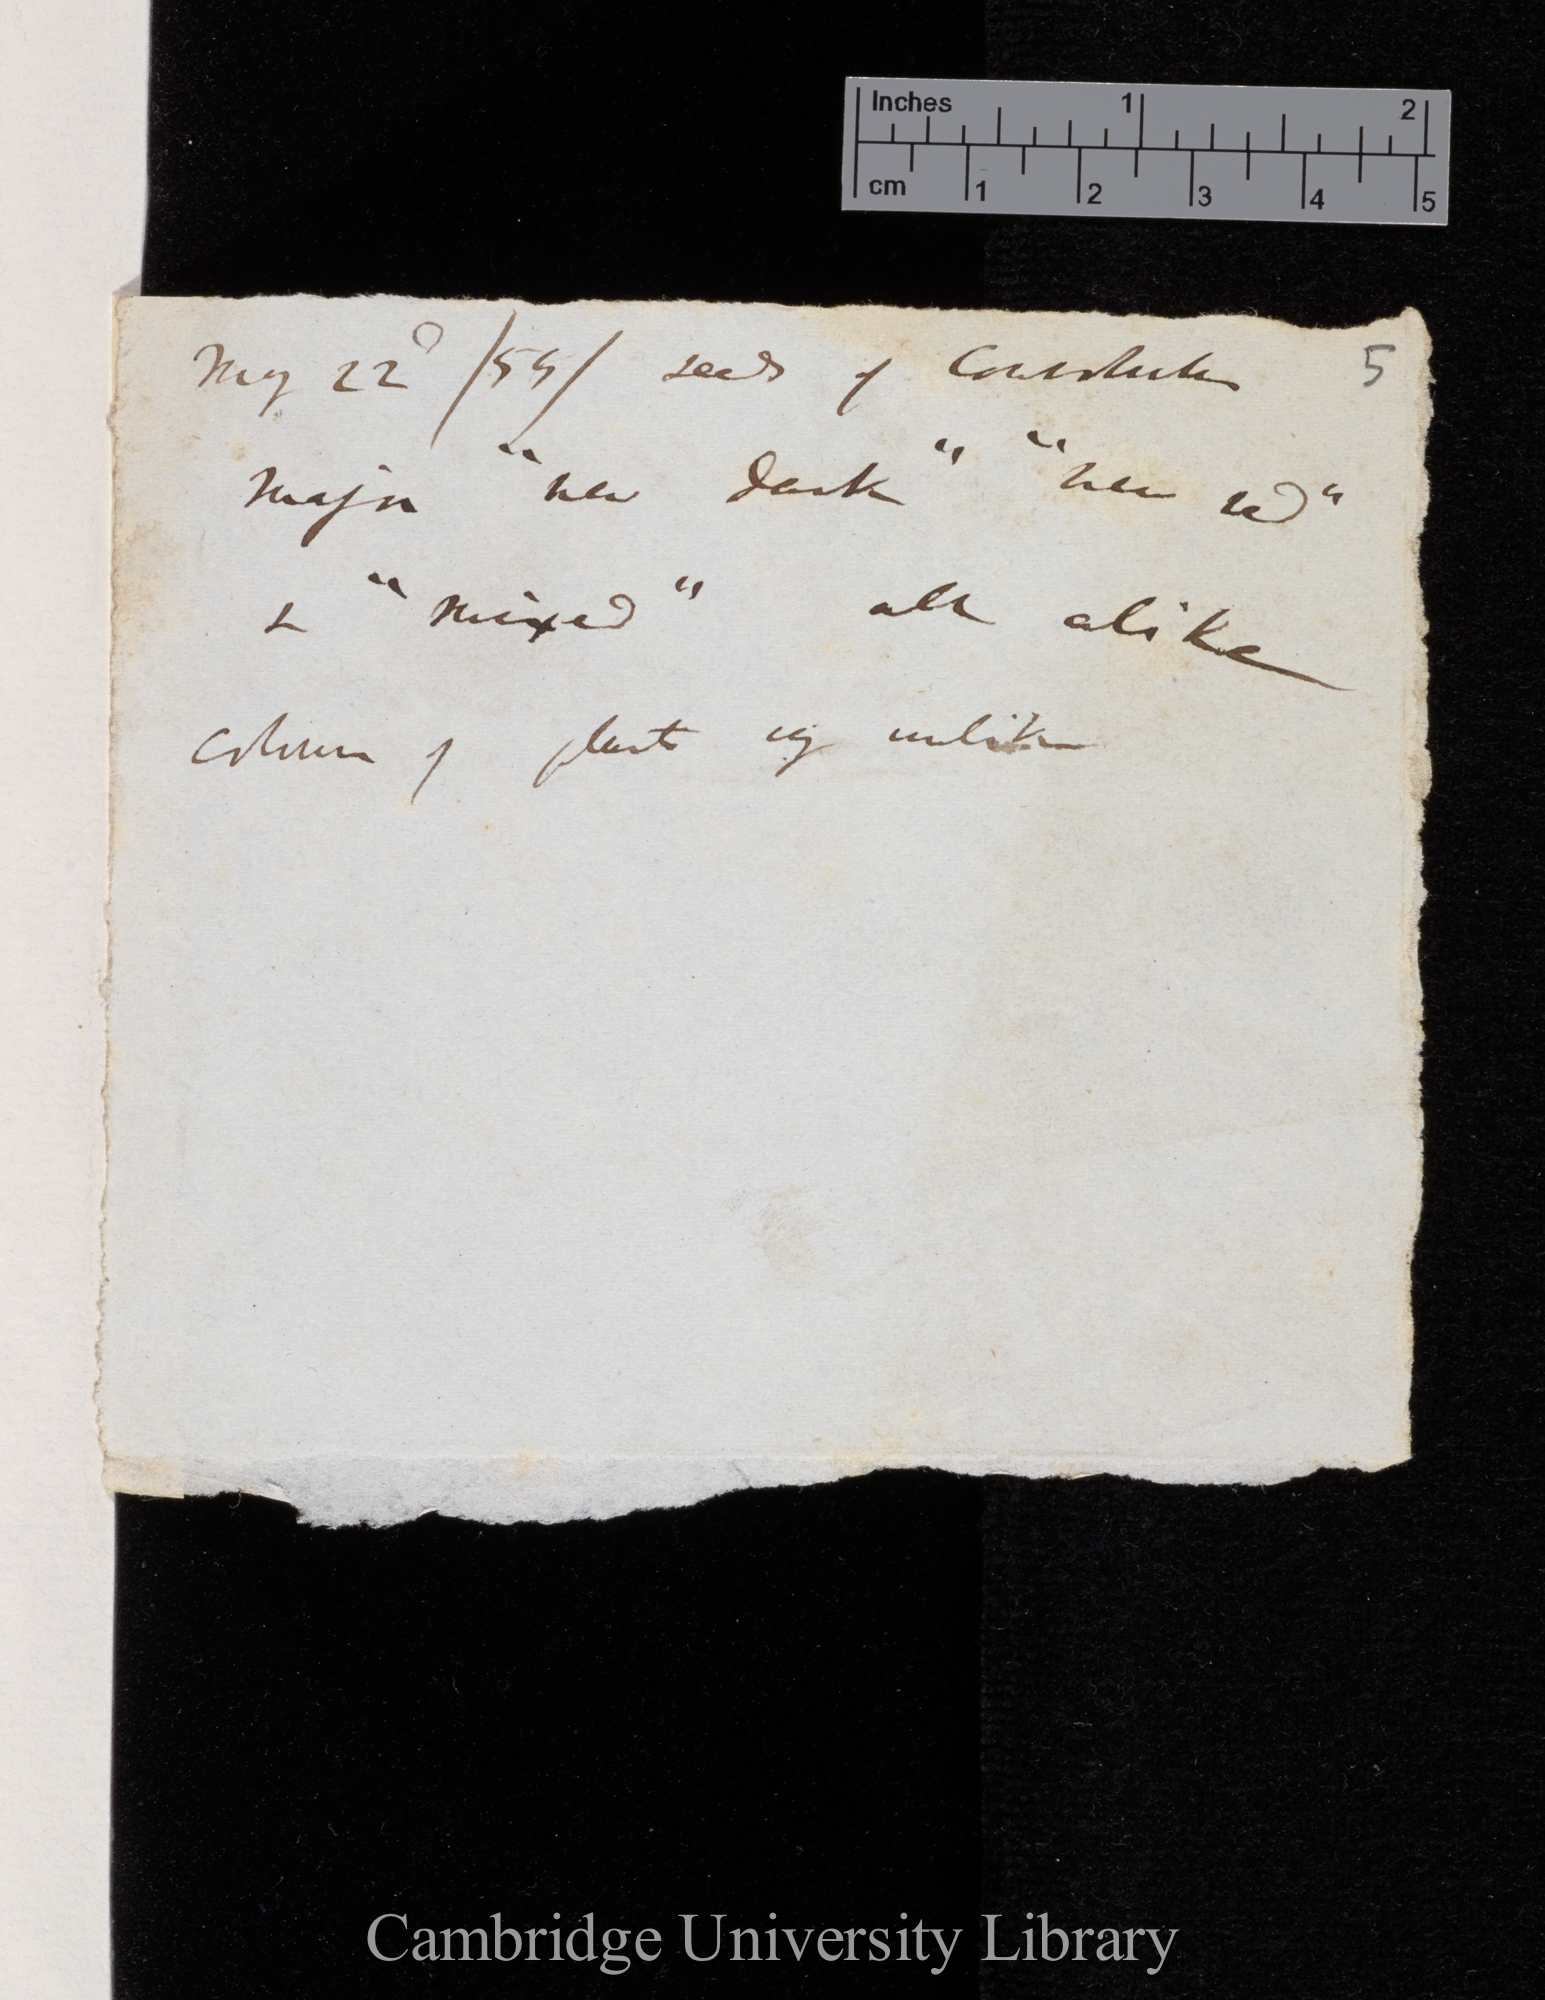 Inches 1 2
cm 1 2 3 4 5
May 22d /55/ seeds of Convolvulus 5
Major "new dark" "new red"
& "mixed" all alike
colours of plants very unlike
Cambridge University Library